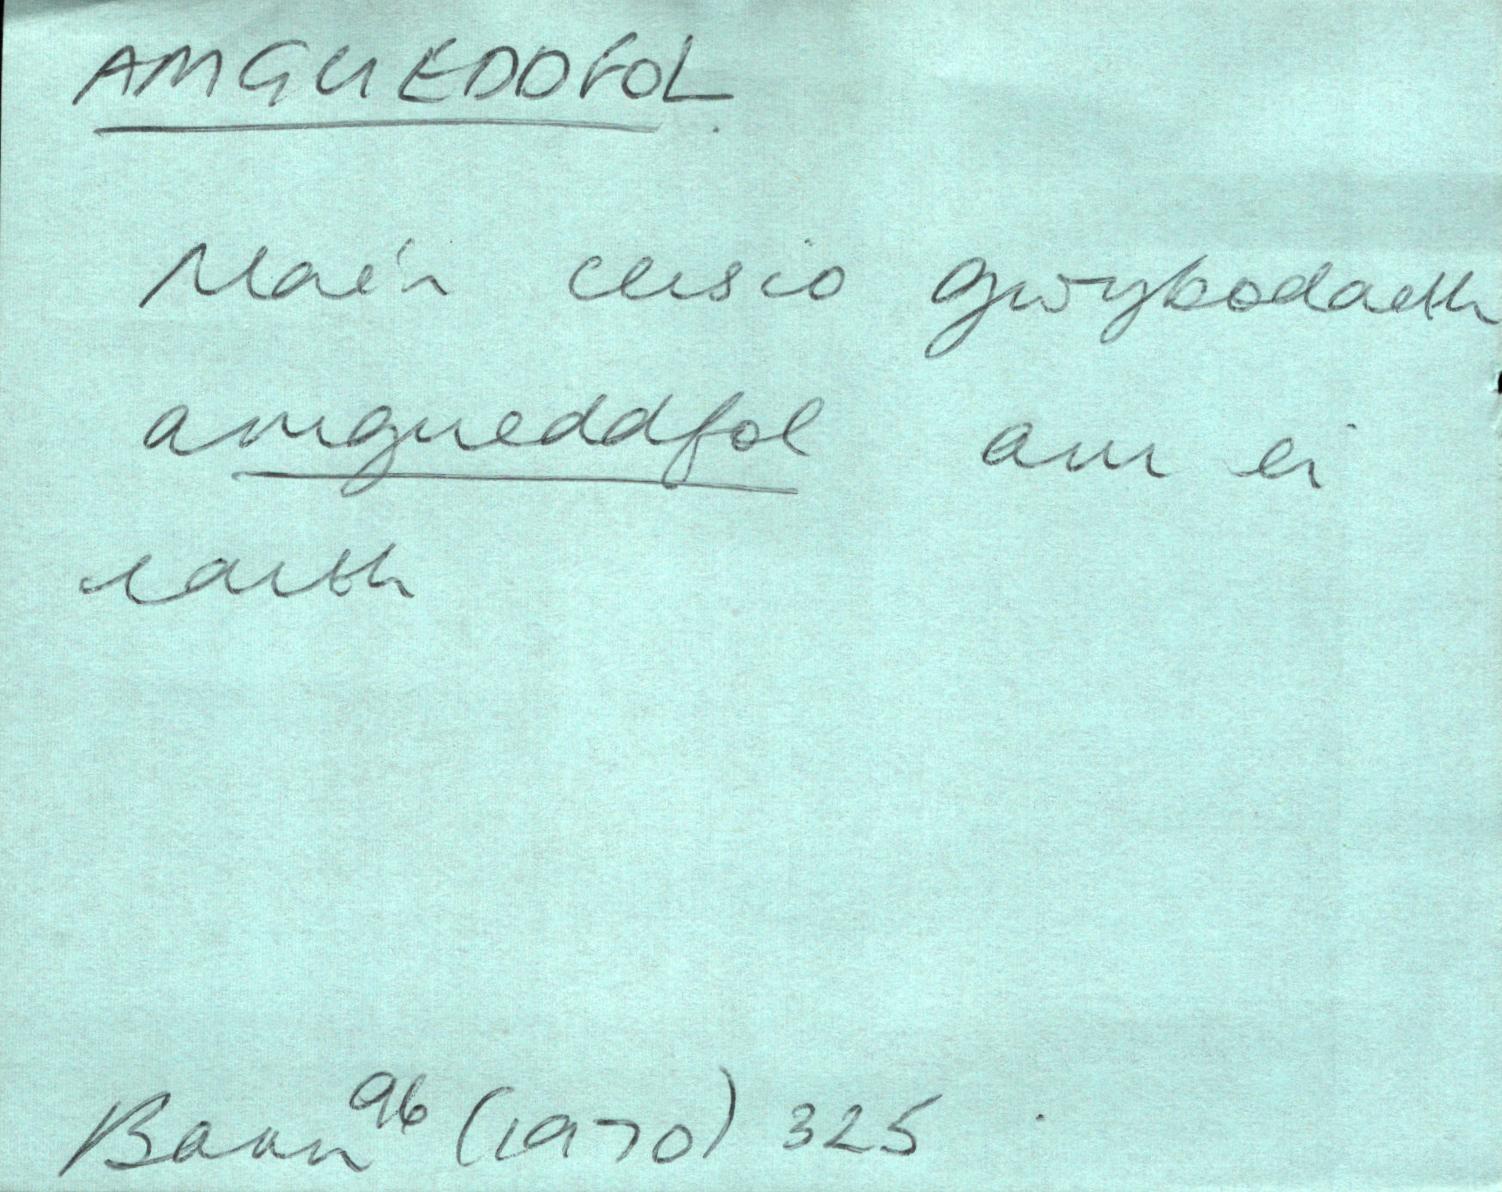 AMGUEDDFOL
Mae'n ceisio gwybodaeth
amgueddfol am ei
Barn 96 (1970) 325